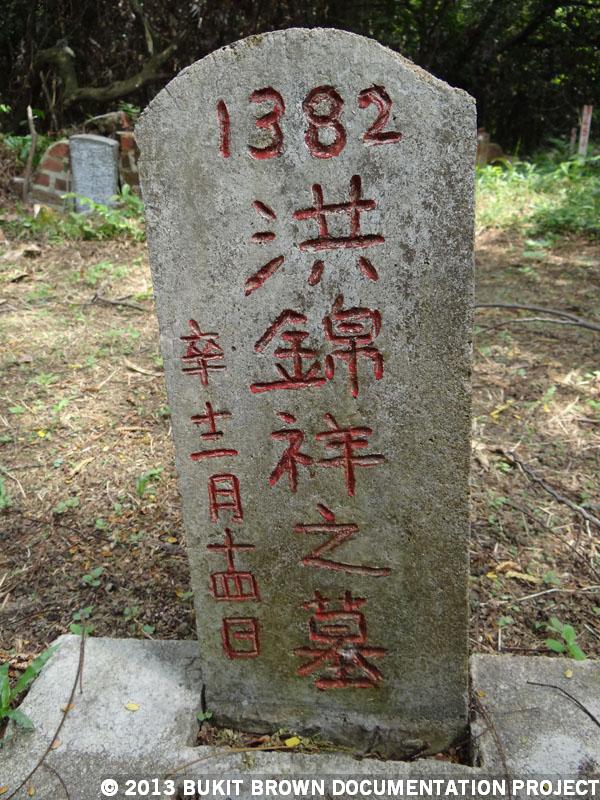 1382
洪錦祥之墓
卒十二月十四日
© 2013 BUKIT BROWN DOCUMENTATION PROJECT